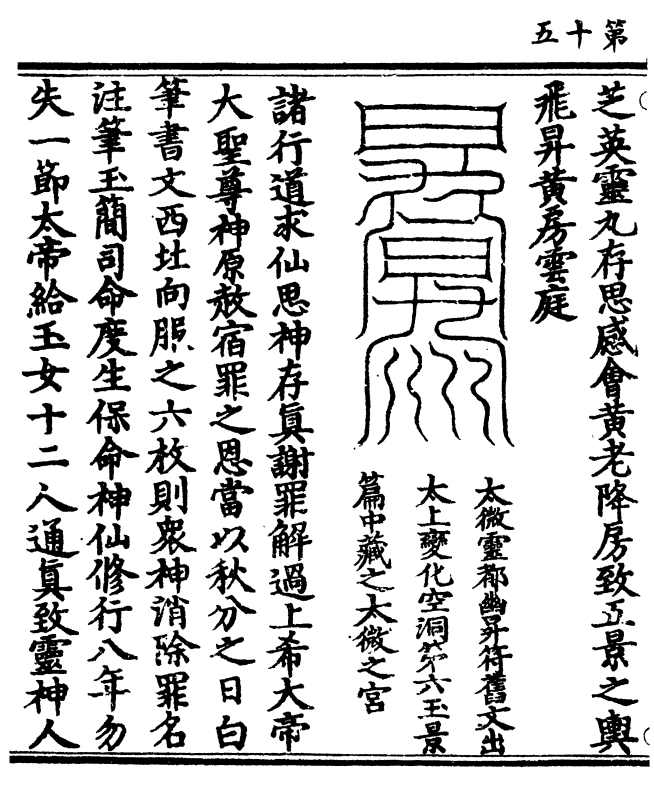 第十五
芝英靈丸存思感會黃老降房致五景之輿
飛昇黃房雲庭
太微靈都幽昇符舊文出
太上變化空洞第六玉景
篇中藏之太微之宮
諸行道求仙思神存眞謝罪解過上希大帝
大聖尊神原赦宿罪之恩當以秋分之日白
筆書文西北向服之六枚則衆神消除罪名
注筆玉簡司命度生保命神仙修行八年勿
失一節太帝給玉女十二人通眞致靈神人